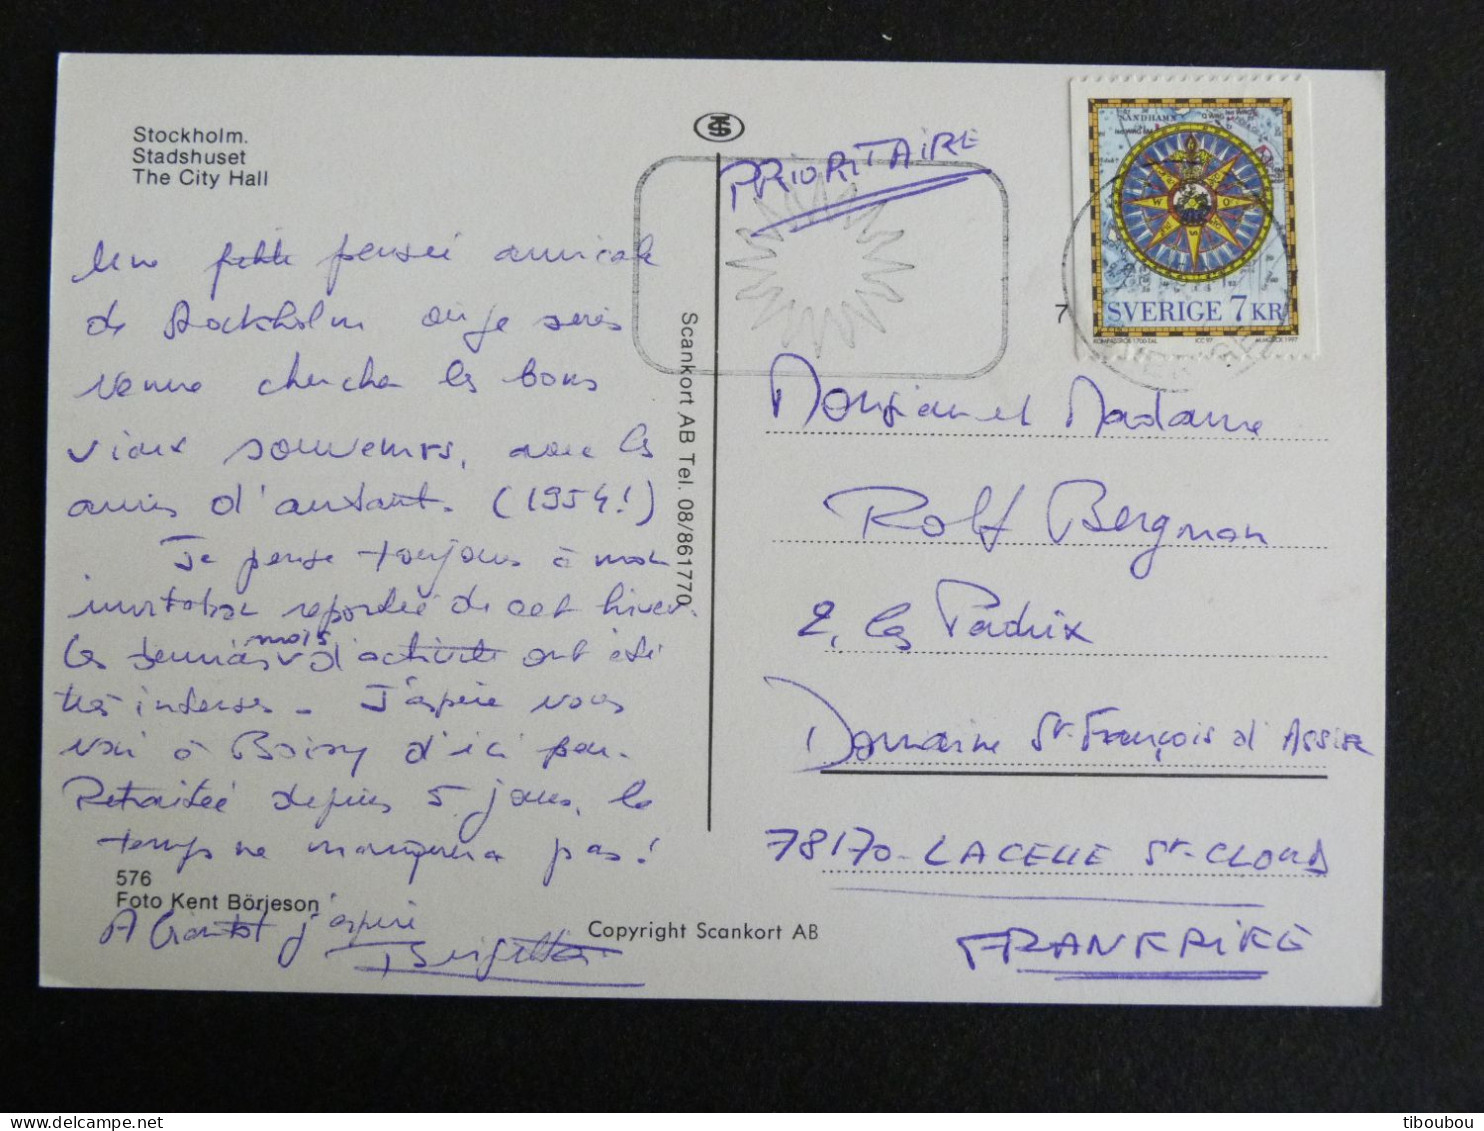 Stockholm.
Stadshuset
The City Hall
Une petite pensée amicale
de Stockholm où je suis
venue chercher les bons
vieux souvenirs, avec les
amis d'antant. (1954!)
Je pense toujours à mon
invitation reportée de cet hiver.
Les derniers mois d'activité ont été
très intenses - J'espère vous
voir à Boissy d'ici peu.
Retraitée depuis 5 jours, le
temps ne manquera pas!
576
Foto Kent Börjeson
A bientot j'espère
Birgitta
Copyright Scankort AB
Scankort AB Tel. 08/861770
PRIORITAIRE
SANDHAMN
SVERIGE 7 KR
7
Monsieur et Madame
Rolf Bergman
2, les Padrix
Domaine St-François d'Assise
78170-LA CELLE St-CLOUD
FRANKRIKE
tiboubou